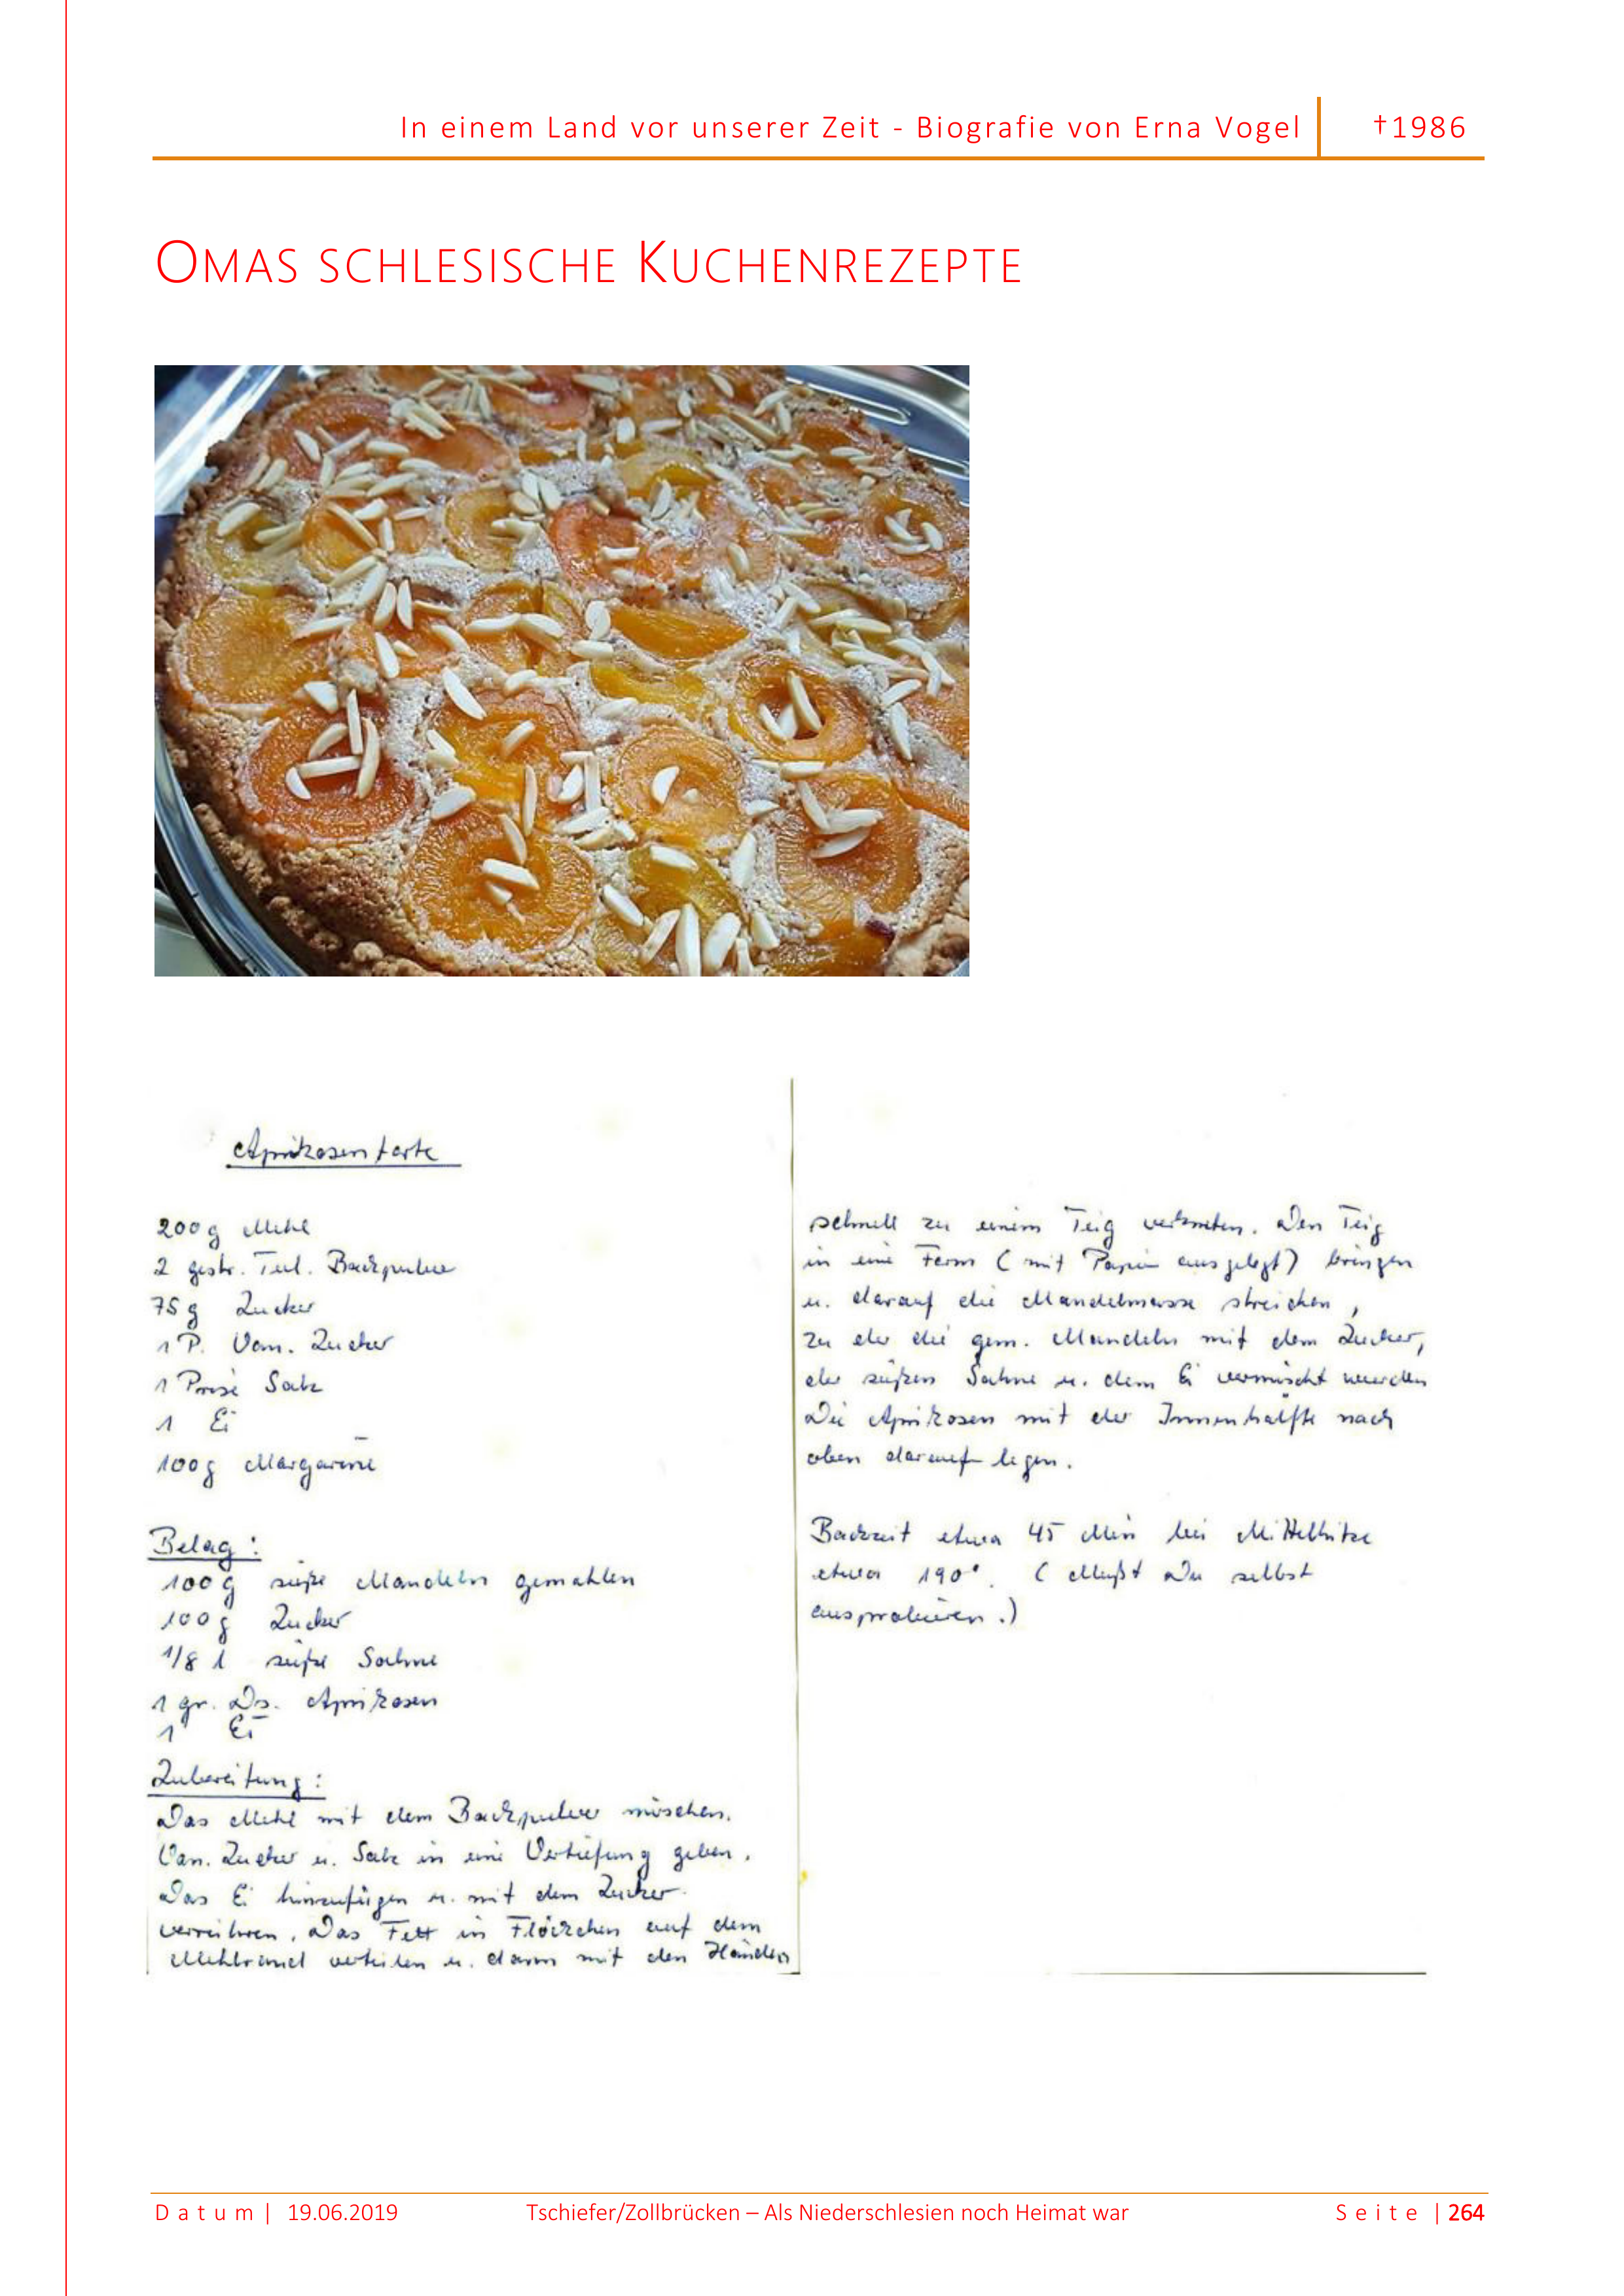 In einem Land vor unserer Zeit - Biografie von Erna Vogel
†1986
Omas schlesische Kuchenrezepte
Aprikosentorte
200g Mehl
2 gestr. Teel. Backpulver
75g Zucker
1 P. Van. Zucker
1 Prise Salz
1 Ei
100g Margarine
Belag:
100g süße Mandeln gemahlen
100g Zucker
1/8 l süße Sahne
1 gr. Ds. Aprikosen
1 Ei
Zubereitung:
Das Mehl mit dem Backpulver mischen.
Van. Zucker u. Salz in eine Vertiefung geben.
Das Ei hinzufügen u. mit dem Zucker
verrühren. Das Fett in Flöckchen auf dem
Mehlrand verteilen u. dann mit den Händen
schnell zu einem Teig verkneten. Den Teig
in eine Form (mit Papier ausgelegt) bringen
u. darauf die Mandelmasse streichen,
zu der die gem. Mandeln mit dem Zucker,
der süßen Sahne u. dem Ei vermischt werden
Die Aprikosen mit der Innenhälfte nach
oben darauf legen.
Backzeit etwa 45 Min bei Mittelhitze
etwa 190°. (Mußt Du selbst
ausprobieren.)
Datum | 19.06.2019
Tschiefer/Zollbrücken – Als Niederschlesien noch Heimat war
Seite | 264